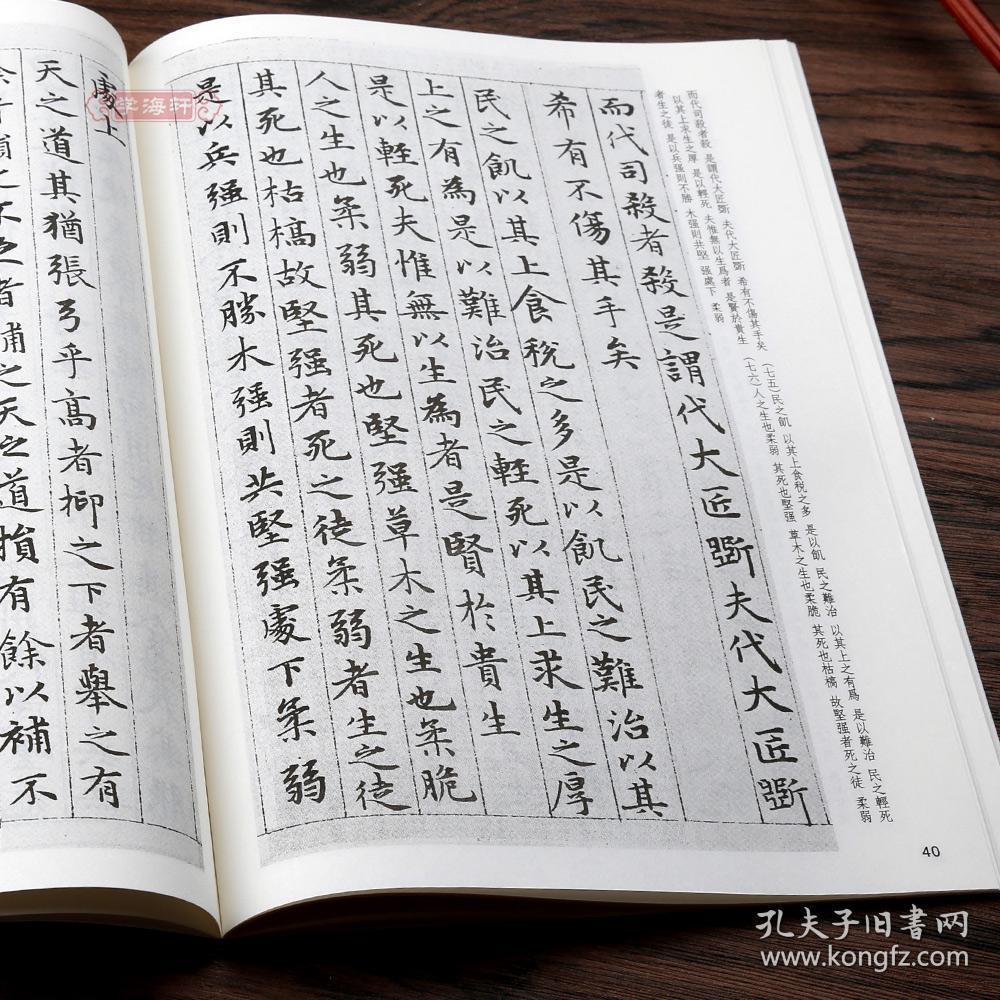 而代司殺者殺是謂代大匠斲夫代大匠斲
希有不傷其手矣
民之飢以其上食稅之多是以飢民之難治以其
上之有為是以難治民之輕死以其上求生之厚
是以輕死夫惟無以生為者是賢於貴生
人之生也柔弱其死也堅强草木之生也柔脆
其死也枯槁故堅强者死之徒柔弱者生之徒
是以兵强則不勝木强則共堅强處下柔弱
處上
天之道其猶張弓乎高者抑之下者舉之有
餘者損之不足者補之天之道損有餘以補不
而代司殺者殺 是謂代大匠斲 夫代大匠斲 希有不傷其手矣 (七五)民之飢 以其上食稅之多 是以飢 民之難治 以其上之有爲 是以難治 民之輕死
以其上求生之厚 是以輕死 夫惟無以生爲者 是賢於貴生 (七六)人之生也柔弱 其死也堅强 草木之生也柔脆 其死也枯槁 故堅强者死之徒 柔弱
者生之徒 是以兵强則不勝 木强則共堅 强處下 柔弱
40
学海轩
孔夫子旧書网
www.kongfz.com